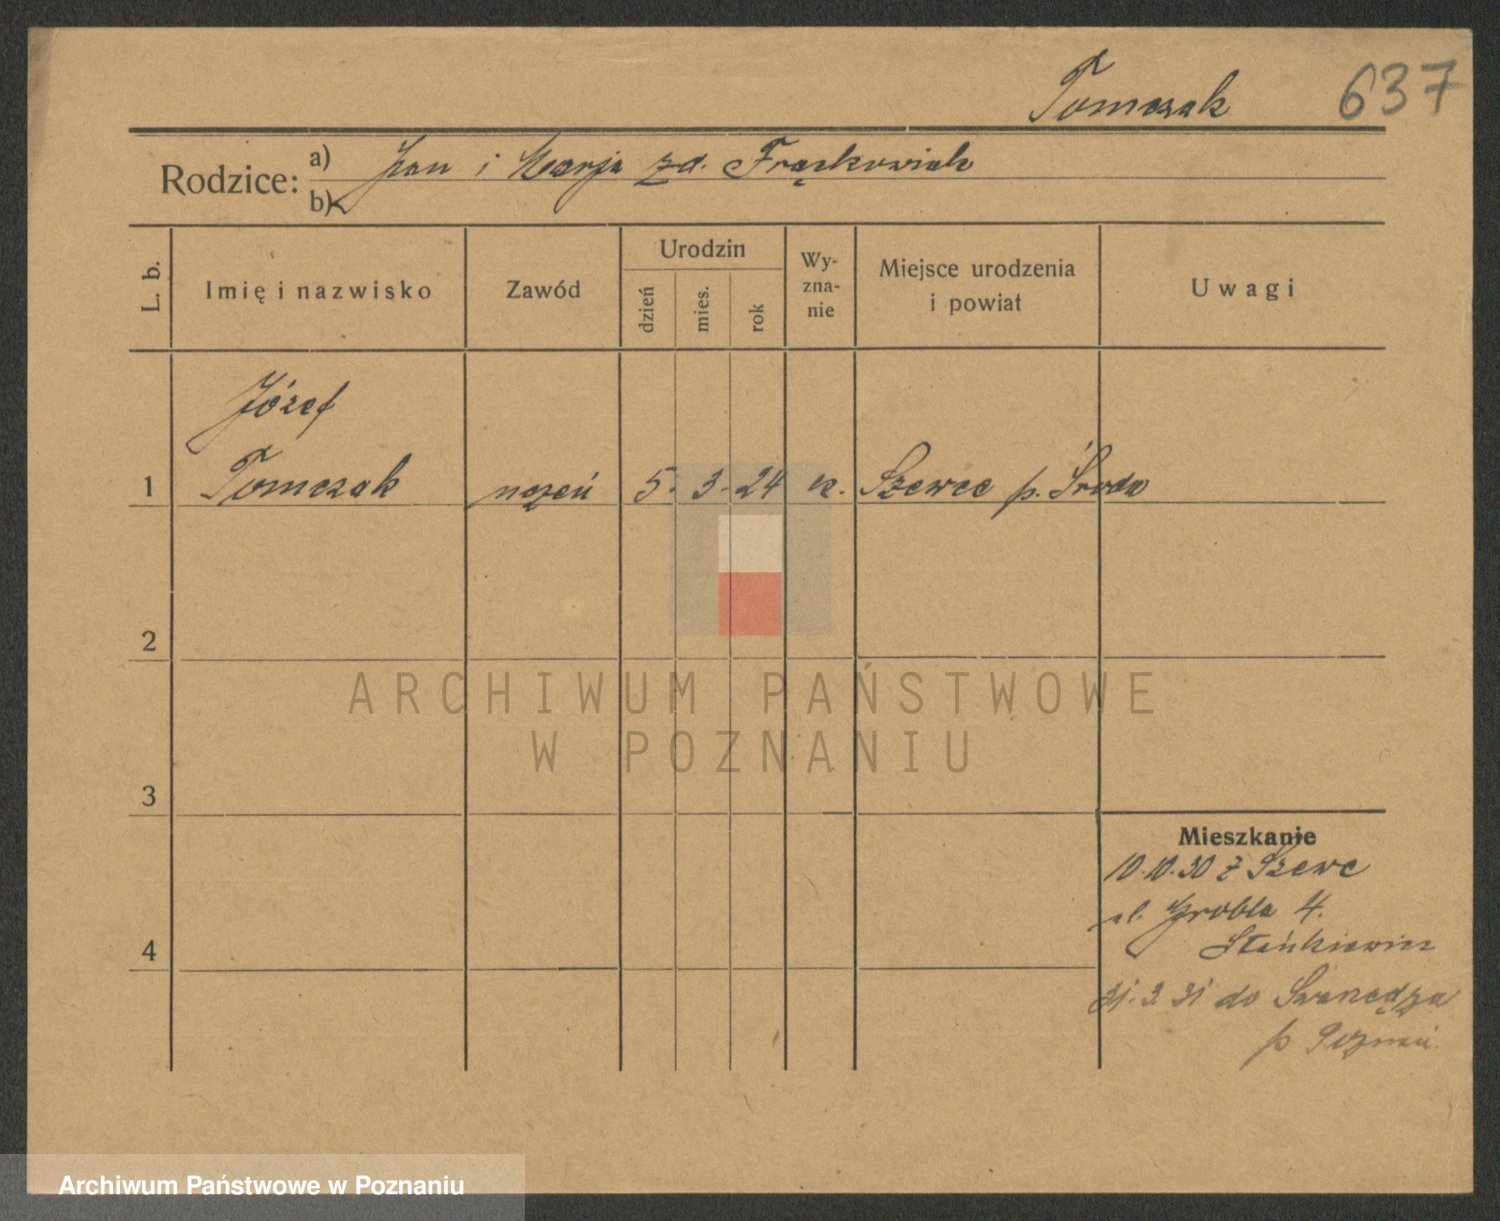 Tomczak 637
Rodzice: a) Jan i Marja zd. Frąckowiak
b)
L. b. Imię i nazwisko Zawód Urodzin dzień mies. rok Wy-zna-nie Miejsce urodzenia i powiat Uwagi
Józef
1 Tomczak uczeń 5. 3. 24 k. Szewce p. Środa
2
ARCHIWUM PAŃSTWOWE
W POZNANIU
3
Mieszkanie
10.10.30 z Szewc
ul. Grobla 4.
4
Stańkiewicz
31. 3 31 do Swarzędza
p Poznań.
Archiwum Państwowe w Poznaniu